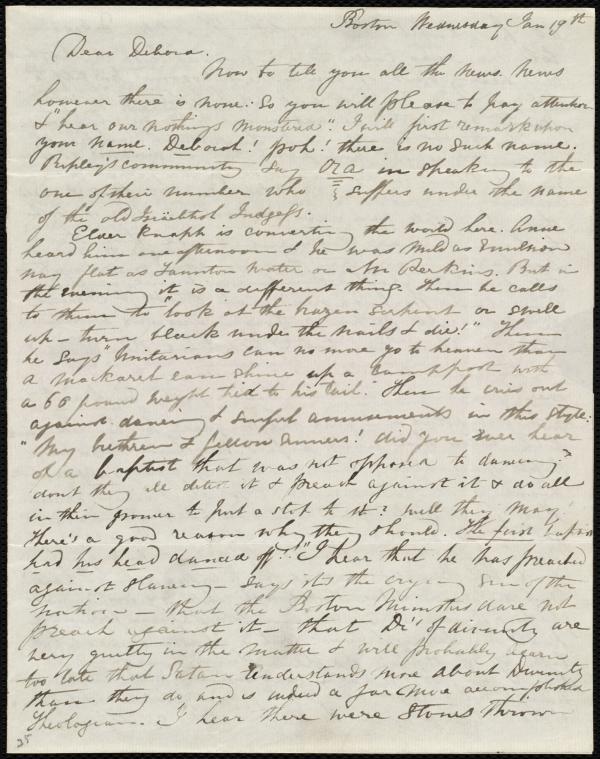 Boston Wednesday Jan 19th
Dear Debora.
Now to tell you all the news. News
however there is none: So you will please to pay attention
& "hear our nothings monstered". I will first remark upon
your name. Deborah! poh! there is no such name.
Ripley's community say Ora in speaking to the
one of their number who suffers under the name
of the old Judgess.
Elder Knapp is converting the world here. Anne
heard him one afternoon & he was mild as Emerson
nay flat as Taunton water or Mr Perkins. But in
the evening it is a different thing. Then he calls
to them to "look at the brazen serpent or swell
up - turn black under the nails & die!" Then
he says "Unitarians can no more go to heaven than
a mackarel can shine up a lamp post with
a 56 pound weight tied to his tail." Then he cries out
against dancing & sinful amusements in this style:
"My brethren & fellow sinners! did you ever hear
of a baptist that was not opposed to dancing?
dont they all detest it & preach against it & do all
in their power to put a stop to it? well they may!
There's a good reason why they should. The first baptist
had his head danced off!" I hear that he has preached
against Slavery - says its the crying sin of the
nation - that the Boston Ministers dare not
preach against it - that Drs of divinity are
very guilty in the matter & will probably
too late that Satan understands more about Divinity
than they do and is indeed a far more accomplished
Theologian. I hear there were stones thrown
25